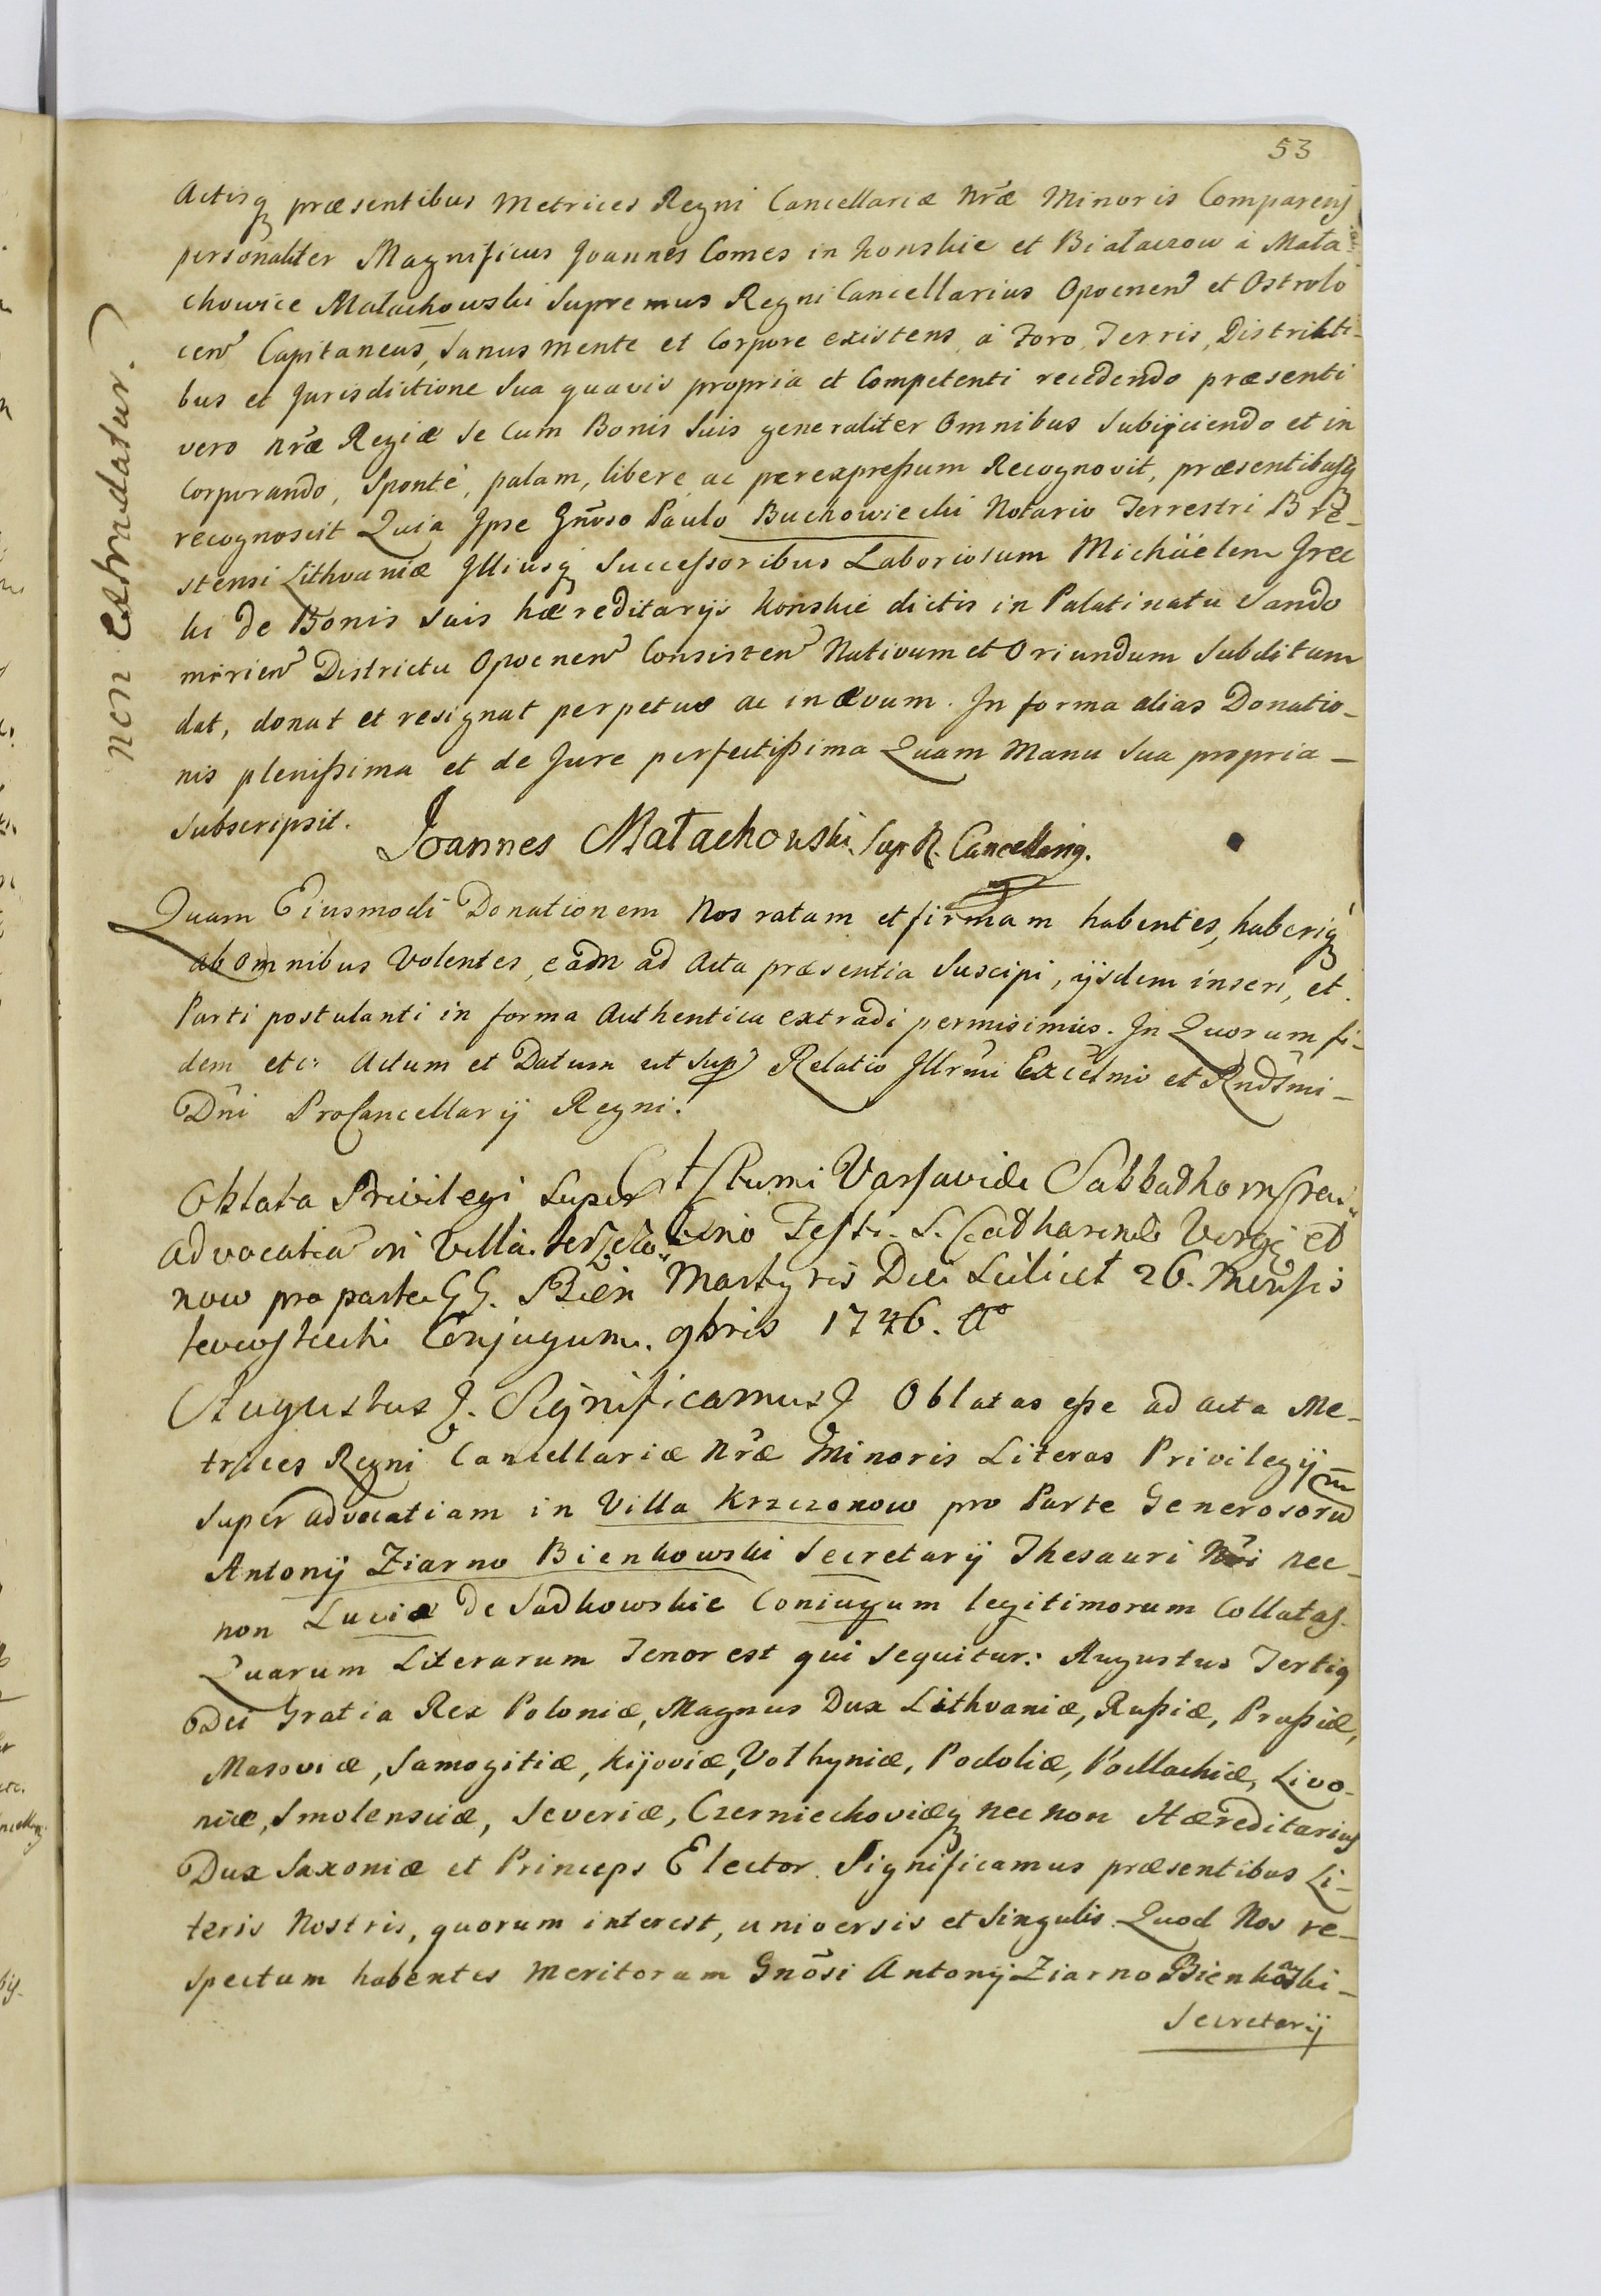 53
Actisq præsentibus Metrices Regni Cancellariæ Nræ Minoris Comparens
personaliter Magnificus Joannes Comes in Konskie et Białaczow a Mała
chowice Małachowski Supremus Regni Cancellarius Opocnen et Ostrolo
cen Capitaneus, Sanus mente et Corpore existens, a Foro, Terris, Districti-
bus et Jurisdictione Sua quavis propria et Competenti recedendo præsenti
vero nræ Regiæ Se Cum Bonis Suis generaliter Omnibus Subijciendo et in
corporando, Sponte, palam, libere, ac per expressum Recognovit, præsentibusq
recognoscit Quia Ipse Gnoso Paulo Buchowiecki Notario Terrestri Bre-
stensi Lithvaniæ Illiusq Successoribus Laboriosum Michäelem Grec
ki de Bonis Suis hæreditarijs Konskie dictis in Palatinatu Sando
mirien Districtu Opocnen Consisten Nativum et Oriundum Subditum
dat, donat et resignat perpetuo ac in ævum. In forma alias Donatio-
nis plenissima et de Jure perfectissima Quam Manu Sua propria -
Subscripsit.
Joannes Małachowski Sup R. Cancellariq.
non Extradatur.
Quam Eiusmodi Donationem Nos ratam et firmam habentes, haberiq
ab omnibus Volentes, eadm ad Acta præsentia Suscipi, ijsdem inseri, et
Parti postulanti in forma Authentica extradi permisimus. In Quorum fi-
dem etc: Actum et Datum ut Sup Relatio Illrmi Excelmi et Rndsmi -
Dni ProCancellarij Regni.
Oblata Privilegi Super
advocatia in Villa Krzczo-
now pro parte GG. Bien
kowskich Conjugum.
Actum Varsaviæ Sabbatho in Cras-
tino Festi S. Catharinæ Virgis et
Martyris Die Scilicet 26. Mensis
9bris 1746. Ao
Augustus &. Significamus & Oblatas esse ad acta Me-
trices Regni Cancellariæ Nræ Minoris Literas Privilegij
Super advocatiam in Villa Krzczonow pro Parte Generosorum
Antonij Ziarno Bienkowski Secretarij Thesauri Nri nec
non Luciæ de Sadkowskie Coniugum legitimorum Collatas.
Quarum Literarum Tenor est qui Sequitur: Augustus Tertiq
Dei Gratia Rex Poloniæ, Magnus Dux Lithvaniæ, Russiæ, Prussiæ,
Masoviæ, Samogitiæ, Kijoviæ, Volhyniæ, Podoliæ, Podlachiæ, Livo-
niæ, Smolensciæ, Severiæ, Czerniechoviæq nec non Hæreditarius
Dux Saxoniæ et Princeps Elector. Significamus præsentibus Li-
teris Nostris, quorum interest, universis et Singulis. Quod Nos re-
spectum habentes Meritorum Gnosi Antonij Ziarno Bienkowski -
Secretarij